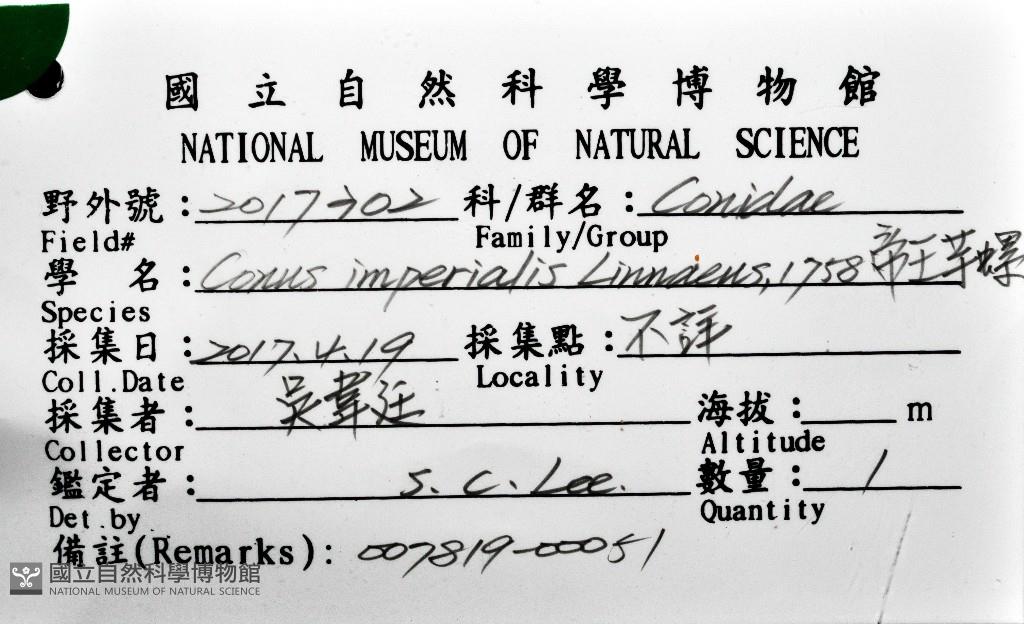 國立自然科學博物館
NATIONAL MUSEUM OF NATURAL SCIENCE
野外號: 2017→02 科/群名: Conidae
Field# Family/Group
學 名: Conus imperialis Linnaeus, 1758 帝王芋螺
Species
採集日: 2017.4.19 採集點: 不詳
Coll.Date Locality
採集者: 吳韋廷 海拔: m
Collector Altitude
鑑定者: S. C. Lee. 數量: 1
Det.by Quantity
備註(Remarks): 007819-00051
國立自然科學博物館
NATIONAL MUSEUM OF NATURAL SCIENCE